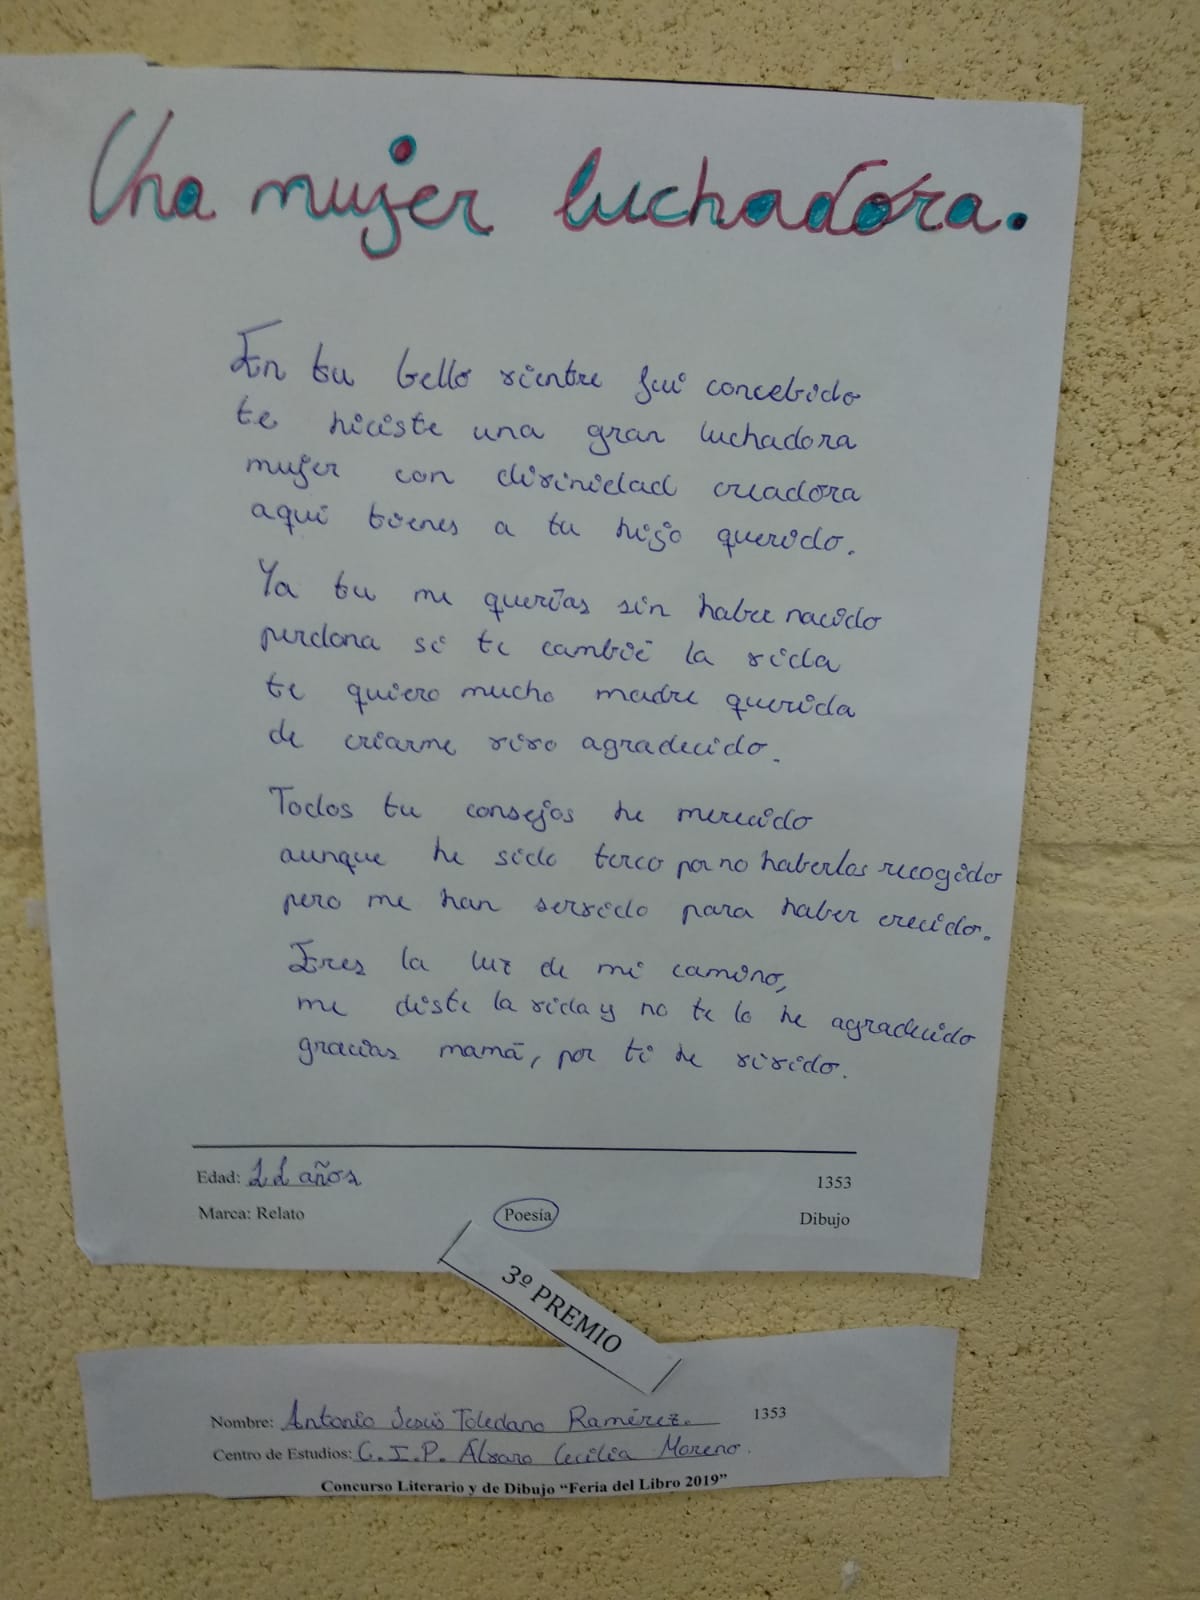 Una mujer luchadora.
En tu bello vientre fui concebido
te hiciste una gran luchadora
mujer con divinidad creadora
aquí tienes a tu hijo querido.
Ya tu me querías sin haber nacido
perdona si te cambié la vida
te quiero mucho madre querida
de criarme vivo agradecido.
Todos tu consejos he merecido
aunque he sido terco por no haberlos recogido
pero me han servido para haber crecido.
Eres la luz de mi camino,
me diste la vida y no te lo he agradecido
gracias mamá, por ti he vivido.
Edad: 11 años 1353
Marca: Relato Poesía Dibujo
3º PREMIO
Nombre: Antonio Jesús Toledano Ramírez. 1353
Centro de Estudios: C.I.P. Álvaro Cecilia Moreno.
Concurso Literario y de Dibujo “Feria del Libro 2019”